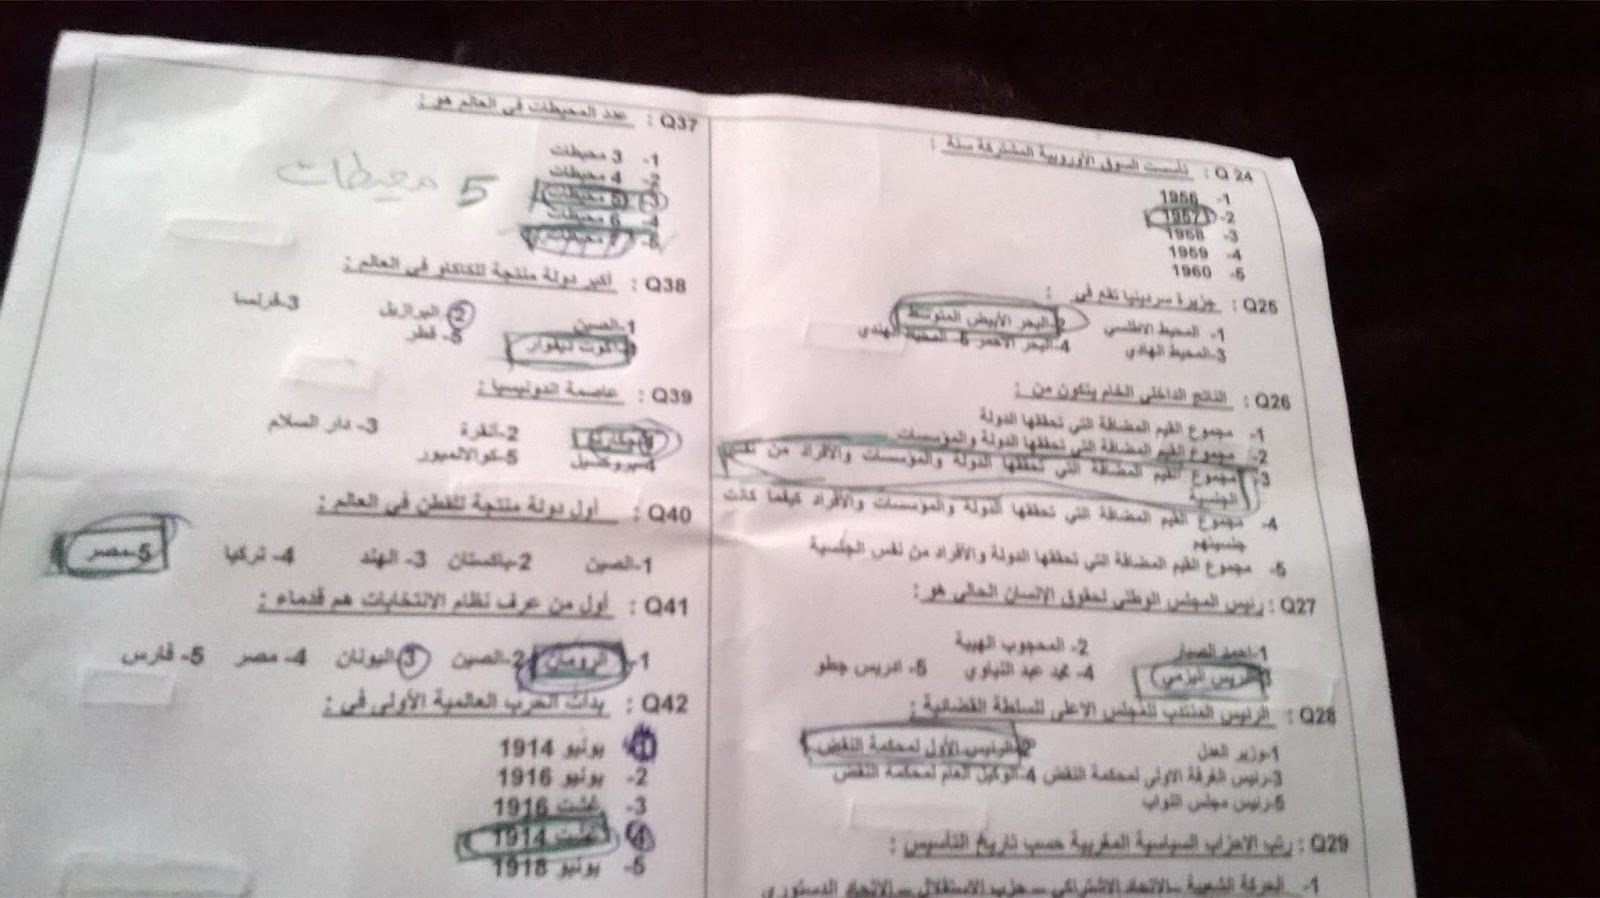 Q 24 : تأسست السوق الأوروبية المشتركة سنة :
1- 1956
2- 1957
3- 1958
4- 1959
5- 1960
Q25 : جزيرة سردينيا تقع في :
1- المحيط الاطلسي 2-البحر الأبيض المتوسط
3-المحيط الهادي 4-البحر الاحمر 5- المحيط الهندي
Q26 : الناتج الداخلي الخام يتكون من :
1- مجموع القيم المضافة التي تحققها الدولة
2- مجموع القيم المضافة التي تحققها الدولة والمؤسسات
3- مجموع القيم المضافة التي تحققها الدولة والمؤسسات والأفراد من نفس
الجنسية
4- مجموع القيم المضافة التي تحققها الدولة والمؤسسات والأفراد كيفما كانت
جنسيتهم
5- مجموع القيم المضافة التي تحققها الدولة والأفراد من نفس الجنسية
Q27 : رئيس المجلس الوطني لحقوق الإنسان الحالي هو :
1-احمد 2- المحجوب الهيبة
3-ادريس اليزمي 4- محمد عبد النباوي 5- ادريس جطو
Q28 : الرئيس المنتدب للمجلس الاعلى للسلطة القضائية :
1-وزير العدل 2-الرئيس الأول لمحكمة النقض
3-رئيس الغرفة الاولى لمحكمة النقض 4-الوكيل العام لمحكمة النقض
5-رئيس مجلس النواب
Q29 : رتب الاحزاب السياسية المغربية حسب تاريخ التأسيس :
1- الحركة الشعبية –الاتحاد الاشتراكي – حزب الاستقلال – الاتحاد الدستوري
Q37 : عدد المحيطات في العالم هو :
1- 3 محيطات
2- 4 محيطات
3- 5 محيطات
4- 6 محيطات
5- 7 محيطات
5 محيطات
Q38 : أكبر دولة منتجة للكاكاو في العالم :
1-الصين 2-البرازيل 3-فرنسا
4-كوت ديفوار 5- قطر
Q39 : عاصمة اندونيسيا :
1-جكارتا 2-أنقرة 3- دار السلام
4-بروكسيل 5-كوالالمبور
Q40 : أول دولة منتجة للقطن في العالم :
1-الصين 2-باكستان 3- الهند 4- تركيا 5-مصر
Q41 : أول من عرف نظام الانتخابات هم قدماء :
1- الرومان 2-الصين 3-اليونان 4- مصر 5- فارس
Q42 : بدأت الحرب العالمية الأولى في :
1- يونيو 1914
2- يونيو 1916
3- غشت 1916
4- غشت 1914
5- يونيو 1918